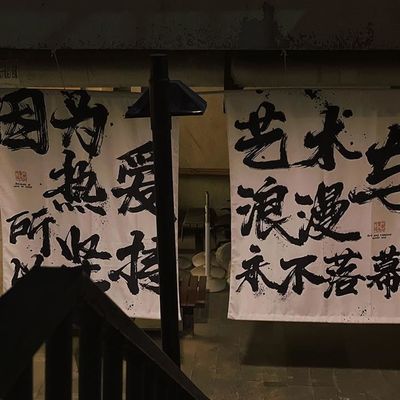 因为
热爱
所以坚持
艺术与
浪漫
永不落幕